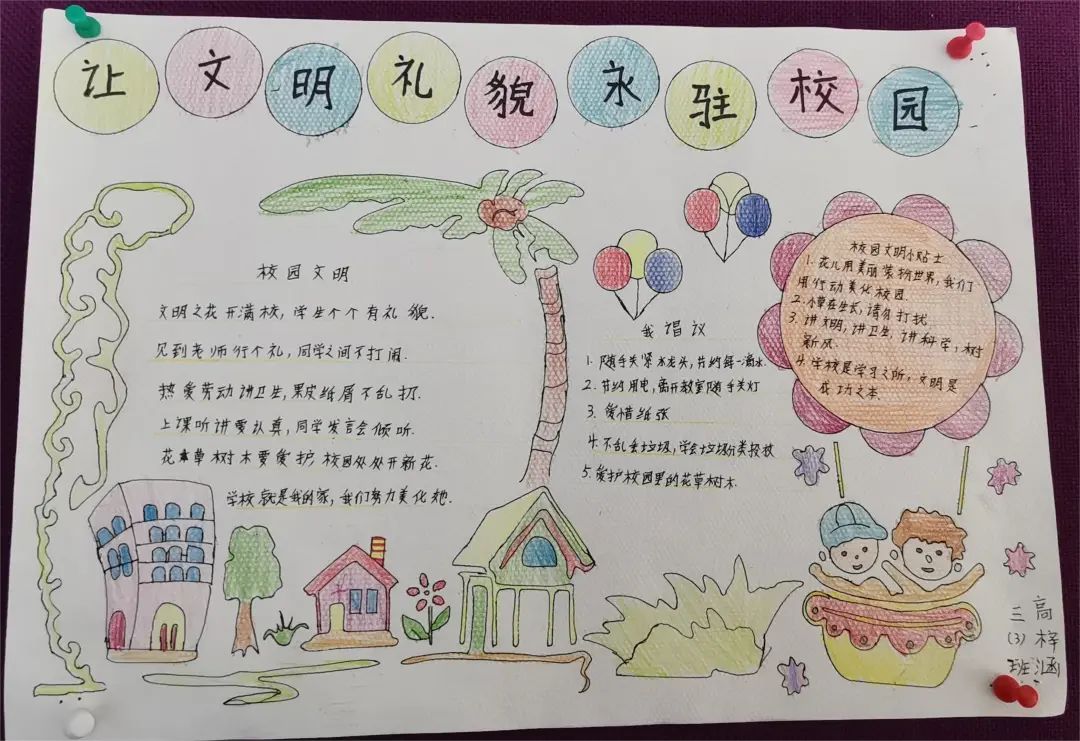 让文明礼貌永驻校园
校园文明
文明之花开满校，学生个个有礼貌.
见到老师行个礼，同学之间不打闹.
热爱劳动讲卫生，果皮纸屑不乱扔.
上课听讲要认真，同学发言会倾听.
花草树木要爱护，校园处处开新花.
学校就是我的家，我们努力美化她.
我倡议
1. 随手关紧水龙头，节约每一滴水.
2. 节约用电，离开教室随手关灯
3. 爱惜纸张
4. 不乱丢垃圾，学会垃圾分类投放
5. 爱护校园里的花草树木.
校园文明小贴士
1. 花儿用美丽装扮世界，我们
用行动美化校园.
2. 小草在生长，请勿打扰
3. 讲文明，讲卫生，讲科学，树
新风.
4. 学校是学习之所，文明是
成功之本.
三(3)班
高梓涵